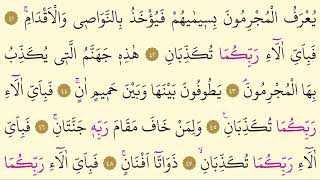 يُعْرَفُ الْمُجْرِمُونَ بِسِيمٰيهُمْ فَيُؤْخَذُ بِالنَّوَاصِي وَالْاَقْدَامِۚ ﴿٤١﴾
فَبِاَيِّ اٰلَٓاءِ رَبِّكُمَا تُكَذِّبَانِ ﴿٤٢﴾ هٰذِهِ جَهَنَّمُ الَّت۪ي يُكَذِّبُ
بِهَا الْمُجْرِمُونَۢ ﴿٤٣﴾ يَطُوفُونَ بَيْنَهَا وَبَيْنَ حَم۪يمٍ اٰنٍۚ ﴿٤٤﴾ فَبِاَيِّ اٰلَٓاءِ
رَبِّكُمَا تُكَذِّبَانِ۟ ﴿٤٥﴾ وَلِمَنْ خَافَ مَقَامَ رَبِّه۪ جَنَّتَانِۚ ﴿٤٦﴾ فَبِاَيِّ
اٰلَٓاءِ رَبِّكُمَا تُكَذِّبَانِۙ ﴿٤٧﴾ ذَوَاتَٓا اَفْنَانٍۚ ﴿٤٨﴾ فَبِاَيِّ اٰلَٓاءِ رَبِّكُمَا